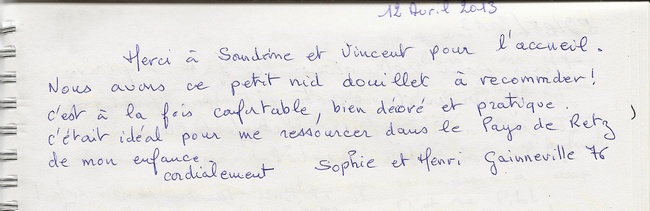 12 Avril 2013
Merci à Sandrine et Vincent pour l'accueil.
Nous avons ce petit nid douillet à recommander!
c'est à la fois confortable, bien décoré et pratique.
c'était idéal pour me ressourcer dans le Pays de Retz
de mon enfance.
cordialement Sophie et Henri Gainneville 76